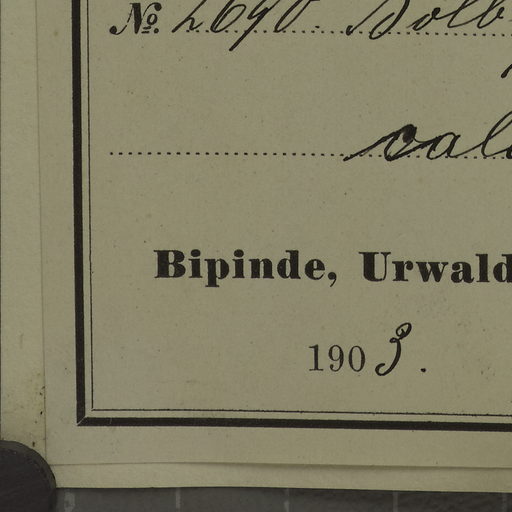 №. 2690. Bolb
cal
Bipinde, Urwald
1903.